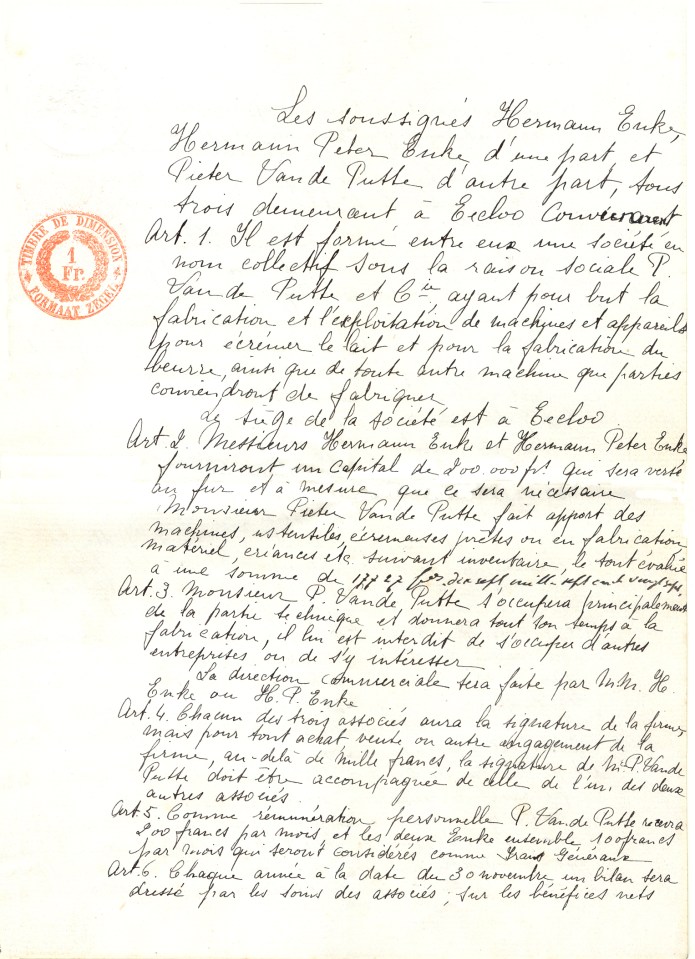 TIMBRE DE DIMENSION
1
Fr.
FORMAAT ZEGEL
Les soussignés Hermann Enke,
Hermann Peter Enke, d'une part, et
Pieter Van de Putte d'autre part, tous
trois demeurant à Eecloo Conviennent
Art. 1. Il est formé entre eux une société en
nom collectif sous la raison sociale P.
Van de Putte et Cie, ayant pour but la
fabrication et l'exploitation de machines et appareils
pour écrémer le lait et pour la fabrication du
beurre, ainsi que de toute autre machine que parties
conviendront de fabriquer
Le siège de la société est à Eecloo.
Art. 2. Messieurs Hermann Enke et Hermann Peter Enke
fourniront un capital de 200.000 frs. qui sera versé
au fur et à mesure que ce sera nécessaire
Monsieur Pieter Van de Putte fait apport des
machines, ustensiles, écrémeuses prêtes ou en fabrication
matériel, criances etc. suivant inventaire, le tout évalué
à une somme de 17727 frs. dix sept mille sept cent vingt sept,
Art. 3. Monsieur P. Van de Putte s'occupera principalement
de la partie technique et donnera tout son temps à la
fabrication, il lui est interdit de s'occuper d'autres
entreprises ou de s'y intéresser
La direction commerciale sera faite par M.M. H.
Enke ou H. P. Enke
Art. 4. Chacun des trois associés aura la signature de la firme,
mais pour tout achat, vente ou autre engagement de la
firme, au-delà de mille francs, la signature de Mr. P. Van de
Putte doit être accompagnée de celle de l'un des deux
autres associés.
Art. 5. Comme rémunération personnelle P. Van de Putte recevra
200 francs par mois, et les deux Enke ensemble, 100 francs
par mois qui seront considérés comme Frais Généraux
Art. 6. Chaque année à la date du 30 novembre un bilan sera
dressé par les soins des associés; sur les bénéfices nets